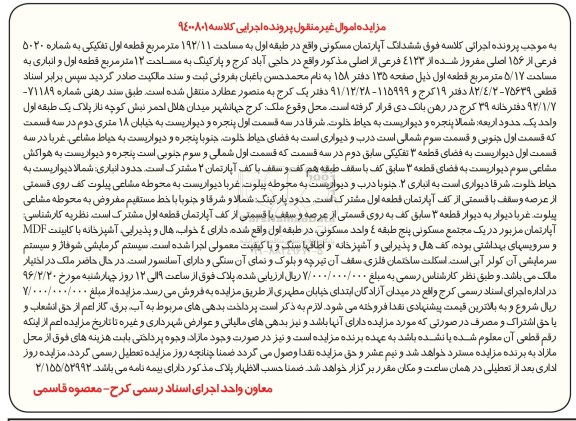 مزایده اموال غیر منقول پرونده اجرایی کلاسه ۹۴۰۰۸۰۱
به موجب پرونده اجرائی کلاسه فوق ششدانگ آپارتمان مسکونی واقع در طبقه اول به مساحت ۱۹۲/۱۱ مترمربع قطعه اول تفکیکی به شماره ۵۰۲۰
فرعی از ۱۵۶ اصلی مفروز شده از ۴۱۲۳ فرعی از اصلی مذکور واقع در حاجی آباد کرج و پارکینگ به مساحت ۱۲مترمربع قطعه اول و انباری به
مساحت ۵/۱۷ مترمربع قطعه اول ذیل صفحه ۱۳۵ دفتر ۱۵۸ به نام محمدحسن باغبان بفروئی ثبت و سند مالکیت صادر گردید سپس برابر اسناد
قطعی ۷۵۶۳۹-۸۲/۴/۲ دفتر ۱۹کرج و ۱۱۵۹۹۹-۹۱/۱۲/۲۸ دفتر یک کرج به منصور عطارد منتقل شده است. طبق سند رهنی شماره ۷۱۱۸۹-
۹۲/۱/۷ دفترخانه ۳۹ کرج در رهن بانک دی قرار گرفته است. محل وقوع ملک: کرج جهانشهر میدان هلال احمر نبش کوچه ناز پلاک یک طبقه اول
واحد یک. حدود اربعه: شمالا پنجره و دیواریست به حیاط خلوت. شرقا در سه قسمت اول پنجره و دیواریست به خیابان ۱۸ متری دوم در سه قسمت
که قسمت اول جنوبی و قسمت سوم شمالی است درب و دیواری است به فضای حیاط خلوت. جنوبا پنجره و دیواریست به حیاط مشاعی. غربا در سه
قسمت اول دیواریست به فضای قطعه ۳ تفکیکی سابق دوم در سه قسمت که قسمت اول شمالی و سوم جنوبی است پنجره و دیواریست به هواکش
مشاعی سوم دیواریست به فضای قطعه ۳ سابق کف با سقف طبقه هم کف و سقف با کف آپارتمان ۲ مشترک است. حدود انباری: شمالا دیواریست به
حیاط خلوت. شرقا دیواری است به انباری ۲. جنوبا درب و دیواریست به محوطه پیلوت. غربا دیواریست به محوطه مشاعی پیلوت کف روی قسمتی
از عرصه و سقف با قسمتی از کف آپارتمان قطعه اول مشترک است. حدود پارکینگ: شمالا و شرقا و جنوبا با خط مستقیم مفروض به محوطه مشاعی
پیلوت. غربا دیوار به دیوار قطعه ۳ سابق کف به روی قسمتی از عرصه و سقف با قسمتی از کف آپارتمان قطعه اول مشترک است. نظریه کارشناسی:
آپارتمان مزبور در یک مجتمع مسکونی پنج طبقه ۴ واحد مسکونی در طبقه اول واقع شده، دارای ۴ خواب، هال و پذیرایی، آشپزخانه با کابینت MDF
و سرویسهای بهداشتی بوده، کف هال و پذیرایی و آشپزخانه و اطاقها سنگ و با کیفیت معمولی اجرا شده است. سیستم گرمایشی شوفاژ و سیستم
سرمایشی آن کولر آبی است. اسکلت ساختمان فلزی، سقف آن تیرچه و بلوک و نمای آن سنگی و دارای آسانسور است. در حال حاضر ملک در اختیار
مالک می باشد. و طبق نظر کارشناس رسمی به مبلغ ۷/۰۰۰/۰۰۰/۰۰۰ ریال ارزیابی شده. پلاک فوق از ساعت ۹الی ۱۲ روز چهارشنبه مورخ ۹۶/۲/۲۰
در اداره اجرای اسناد رسمی کرج واقع در میدان آزادگان ابتدای خیابان مطهری از طریق مزایده به فروش می رسد. مزایده از مبلغ ۷/۰۰۰/۰۰۰/۰۰۰
ریال شروع و به بالاترین قیمت پیشنهادی نقدا فروخته می شود. لازم به ذکر است پرداخت بدهی های مربوط به آب، برق، گاز اعم از حق انشعاب و
یا حق اشتراک و مصرف در صورتی که مورد مزایده دارای آنها باشد و نیز بدهی های مالیاتی و عوارض شهرداری و غیره تا تاریخ مزایده اعم از اینکه
رقم قطعی آن معلوم شده یا نشده باشد به عهده برنده مزایده است و نیز در صورت وجود مازاد، وجوه پرداختی بابت هزینه های فوق از محل
مازاد به برنده مزایده مسترد خواهد شد و نیم عشر و حق مزایده نقدا وصول می گردد ضمنا چنانچه روز مزایده تعطیل رسمی گردد، مزایده روز
اداری بعد از تعطیلی در همان ساعت و مکان مقرر برگزار خواهد شد. ضمنا حسب الاظهار پلاک مذکور دارای بیمه نامه می باشد. ۲/۱۵۵/۵۲۹۹۲
معاون واحد اجرای اسناد رسمی کرج- معصوه قاسمی